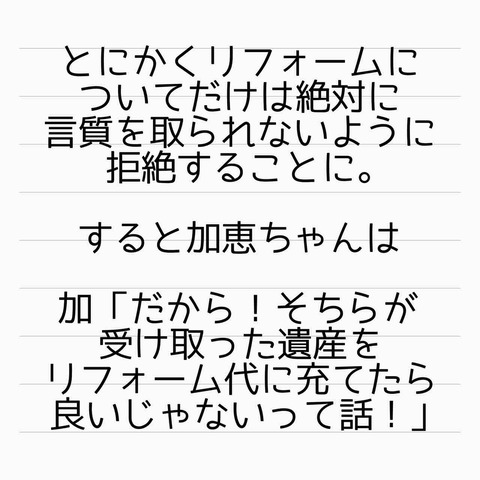 とにかくリフォームに
ついてだけは絶対に
言質を取られないように
拒絶することに。
すると加恵ちゃんは
加「だから！そちらが
受け取った遺産を
リフォーム代に充てたら
良いじゃないって話！」